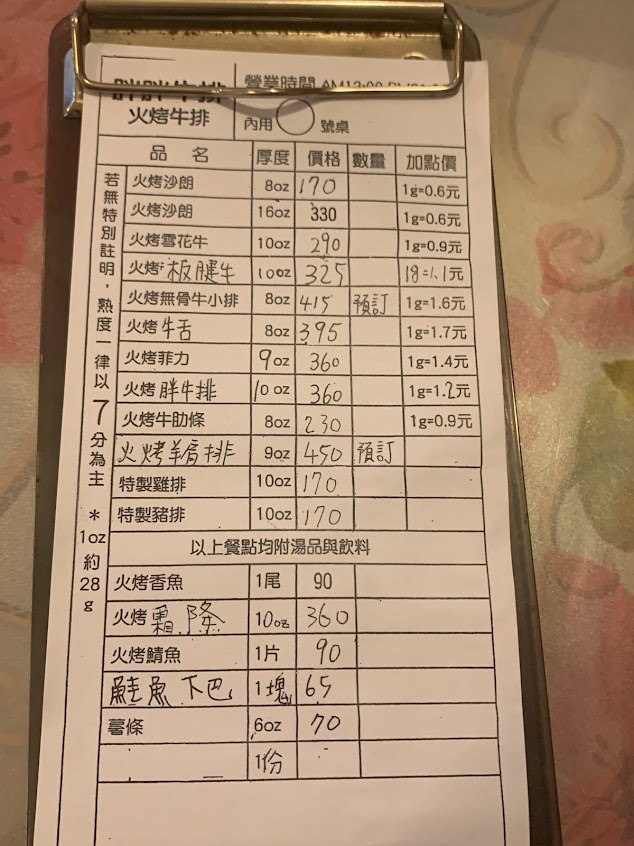 胖胖牛排
火烤牛排
營業時間 AM12:00
內用 號桌
品名 厚度 價格 數量 加點價
火烤沙朗 8oz 170 1g=0.6元
火烤沙朗 16oz 330 1g=0.6元
火烤雪花牛 10oz 290 1g=0.9元
火烤板腱牛 10oz 325 1g=1.1元
火烤無骨牛小排 8oz 415 預訂 1g=1.6元
火烤牛舌 8oz 395 1g=1.7元
火烤菲力 9oz 360 1g=1.4元
火烤胖牛排 10oz 360 1g=1.2元
火烤牛肋條 8oz 230 1g=0.9元
火烤羊肩排 9oz 450 預訂
特製雞排 10oz 170
特製豬排 10oz 170
以上餐點均附湯品與飲料
火烤香魚 1尾 90
火烤霜降 10oz 360
火烤鯖魚 1片 90
鮭魚下巴 1塊 65
薯條 6oz 70
1份
若無特別註明，熟度一律以7分為主 *1oz約28g